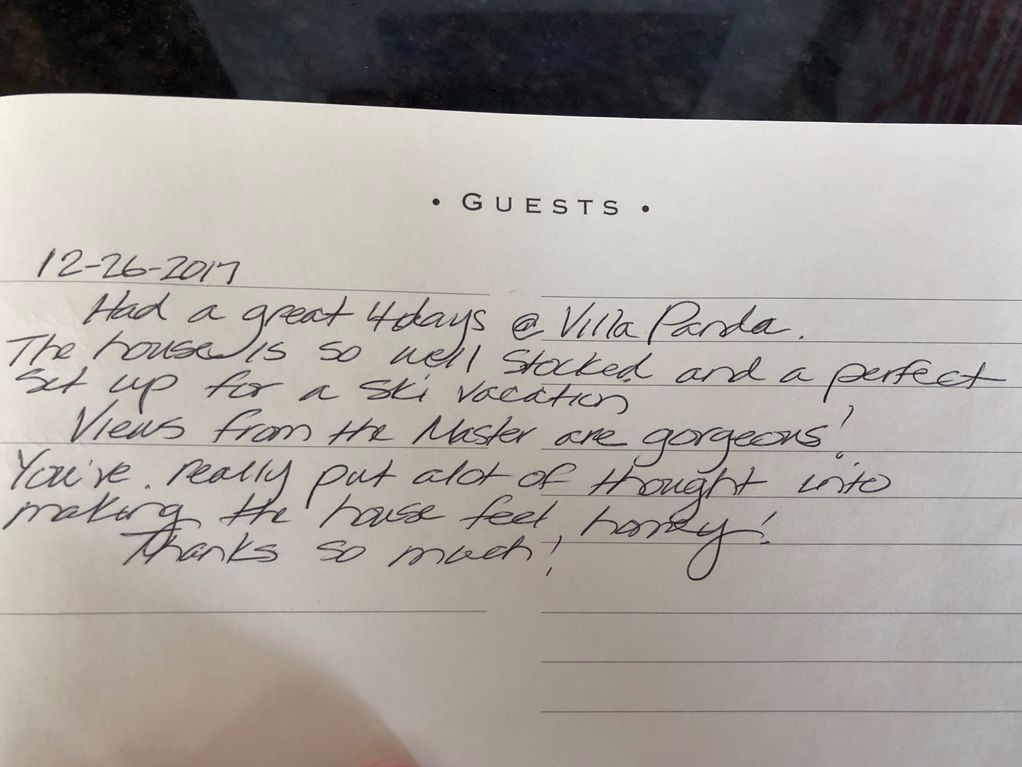 • GUESTS •
12-26-2017
Had a great 4days @ Villa Panda.
The house is so well stocked and a perfect
set up for a ski vacation
Views from the Master are gorgeous!
You've really put alot of thought into
making the house feel homey!
Thanks so much!